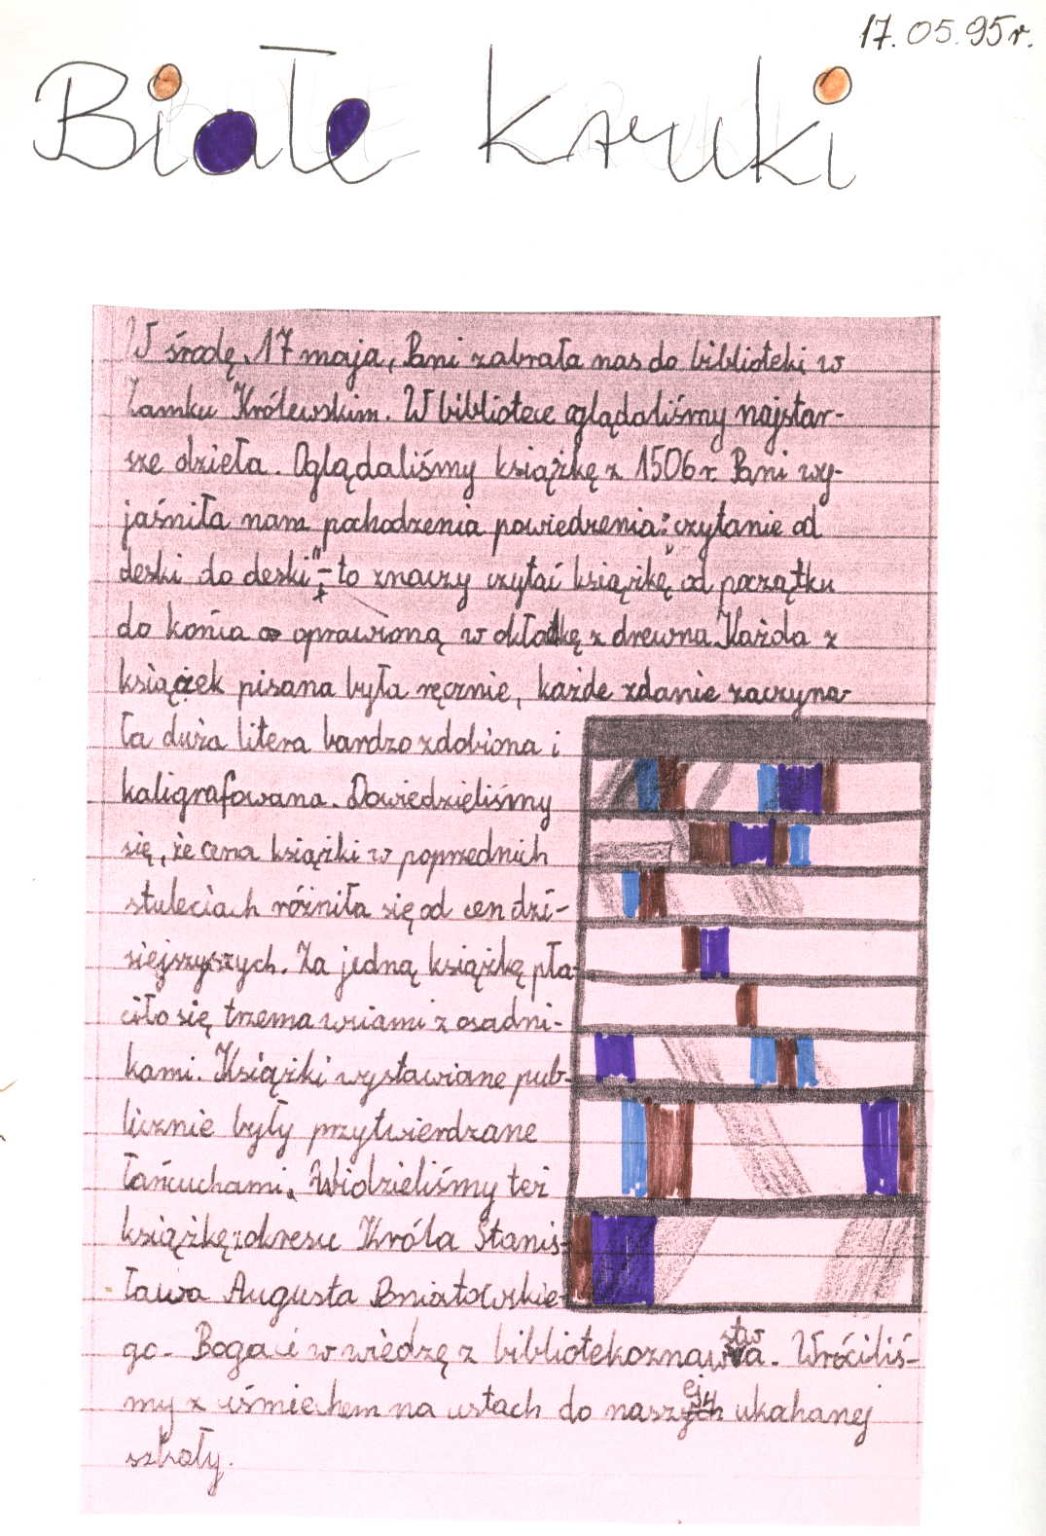 17.05.95r.
Białe kruki
W środę, 17 maja, Pani zabrała nas do biblioteki w
Zamku Królewskim. W bibliotece oglądaliśmy najstar-
sze dzieła. Oglądaliśmy książkę z 1506 r. Pani wy-
jaśniła nam pochodzenia powiedzenia: "czytanie od
deski do deski" - to znaczy czytać książkę od początku
do końca oprawioną w okładkę z drewna. Każda z
książek pisana była ręcznie, każde zdanie zaczyna-
ła duża litera bardzo zdobiona i
kaligrafowana. Dowiedzieliśmy
się, że cena książki w poprzednich
stuleciach różniła się od cen dzi-
siejszyszych. Za jedną książkę pła-
ciło się trzema wsiami z osadni-
kami. Książki wystawiane pub-
licznie były przytwierdzane
łańcuchami. Widzieliśmy też
książkę z okresu Króla Stanis-
ława Augusta Poniatowskie-
go. Bogaci w wiedzę z bibliotekoznawstwa. Wróciliś-
my z uśmiechem na ustach do naszej ukahanej
szkoły.